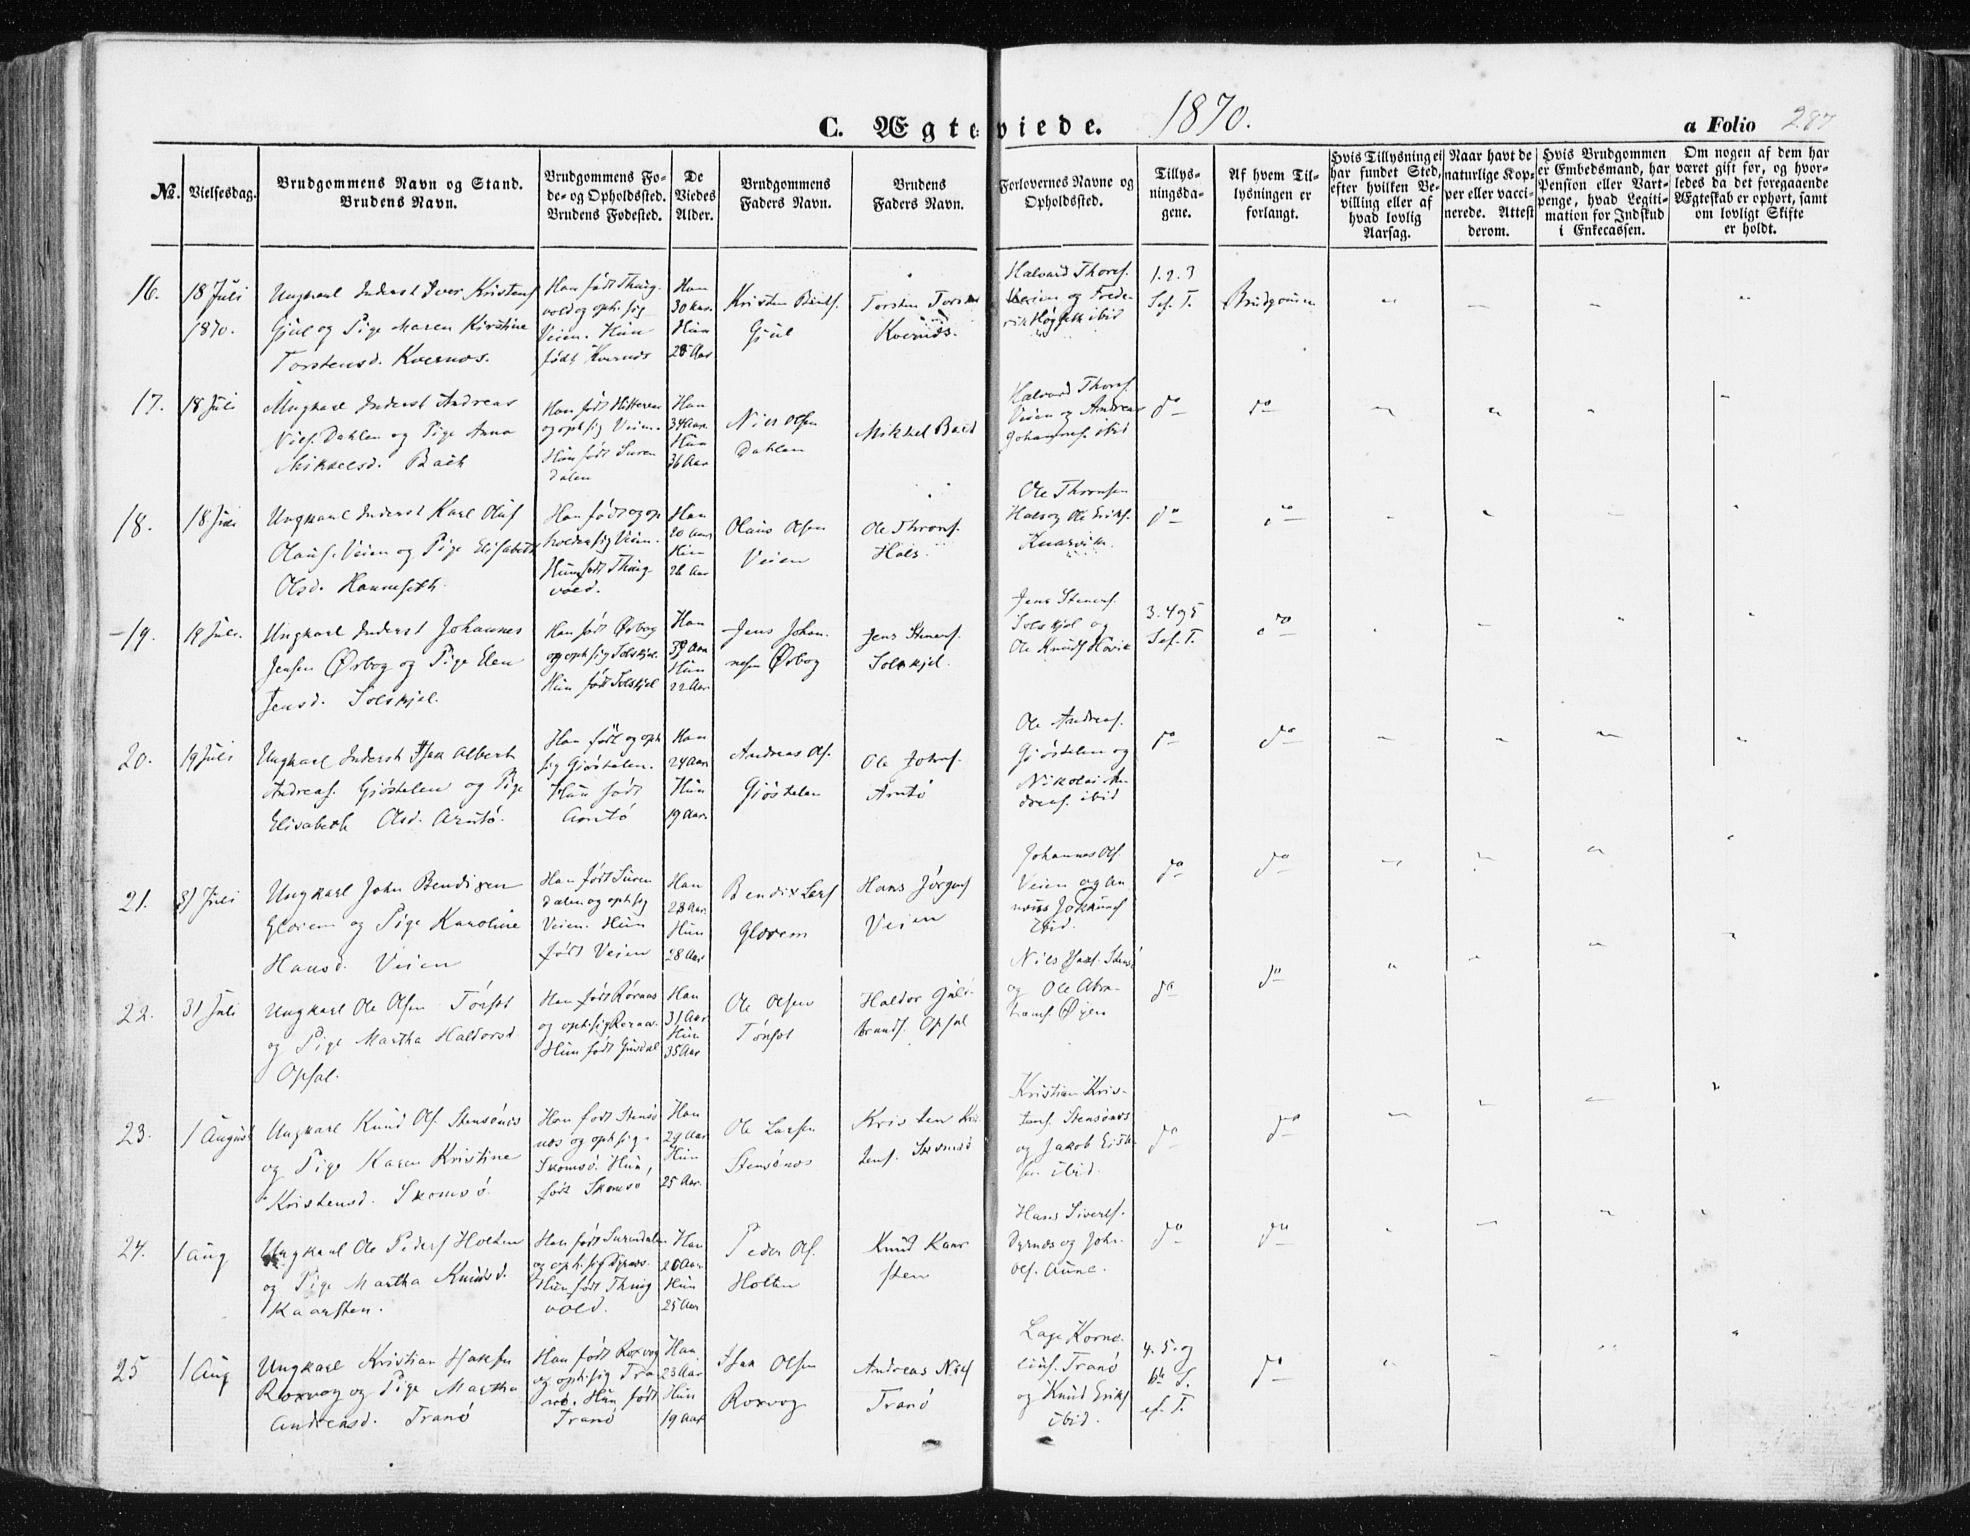 C. Ægteviede. 1870.
a Folio 287
№.
Vielsesdag.
Brudgommens Navn og Stand.
Brudens Navn.
Brudgommens Fø-
de- og Opholdssted.
Brudens Fødested.
De
Viedes
Alder.
Brudgommens
Faders Navn.
Brudens
Faders Navn.
Forlovernes Navne og
Opholdssted.
Tillys-
ningsda-
gene.
Af hvem Til-
lysningen er
forlangt.
Hvis Tillysning ei
har fundet Sted,
efter hvilken Be-
villing eller af
hvad lovlig
Aarsag.
Naar havt de
naturlige Kop-
per eller vacci-
nerede. Attest
derom.
Hvis Brudgommen
er Embedsmand, har
Pension eller Vart-
penge, hvad Legiti-
mation for Indskud
i Enkecassen.
Om nogen af dem har
været gift før, og hvor-
ledes da det foregaaende
Ægteskab er ophørt, samt
om lovligt Skifte
er holdt.
16.
18 Juli
1870.
Ungkarl Inderst Iver Kristens
Gjul og Pige Maren Kirstine
Torstensd. Kvernes.
Han født Thing-
vold og oph. sig
Veien. Hun
født Kvernes
Han
30 Aar.
Hun
28 Aar
Kristen
Gjul
Torsten
Kvernes.
Halvard Thores.
Veien og Frede-
rik ibid
1. 2. 3
Sef. T.
Brudgommen
17.
18 Juli
Ungkarl Inderst Andreas
Niels. Dahlen og Pige Anna
Mikkelsd. Bach
Han født Hitteren
og oph sig Veien.
Hun født Suren
dalen
Han
34 Aar.
Hun
36 Aar
Niels Olsen
Dahlen
Mikkel
Halvard Thores.
Veien og Andreas
Johannes. ibid
do
do
18.
18 Juli
Ungkarl Inderst Karl Oluf
Olaus. Veien og Pige Elisabeth
Olsd.
Han født og op
holder sig Veien.
Hun født Thing-
vold.
Han
20 Aar
Hun
26 Aar
Olaus Olsen
Veien
Ole Throns.
Hals.
Ole Thronsen
Hals og Ole Eriks.
Knarvik
do
do
19.
19 Juli.
Ungkarl Inderst Johannes
Jensen Ørbog og Pige Elen
Jensd. Solskjel.
Han født Ørbog
og oph sig Solskjel.
Hun født Solskjel
Han
39 Aar
Hun
22 Aar
Jens Johan-
nesen Ørbog
Jens Steners.
Solskjel.
Jens Steners.
Solskjel og
Ole Knuds Havik
3. 4 og 5
Sef. T.
do
20.
19 Juli
Ungkarl Inderst Isak Albert
Andreas. Gjøstelen og Pige
Elisabeth Olsd. Arntø.
Han født og oph
sig Gjøstelen.
Hun født
Arntø
Han
24 Aar.
Hun
19 Aar.
Andreas Ols.
Gjøstelen
Ole Johns.
Arntø
Ole Andreas.
Gjøstelen og
Nikolai An-
dreas. ibid
do
do
21.
31 Juli
Ungkarl John Bendixen
Glærem og Pige Karoline
Hansd. Veien
Han født Suren
dalen og oph sig
Veien. Hun
født Veien
Han
28 Aar.
Hun
28 Aar
Bendix Lars
Glærem
Hans Jørgens
Veien
Johannes Ols.
Veien og
ibid.
do
do
22.
31 Juli
Ungkarl Ole Olsen Tønset
og Pige Martha Haldorsd
Opsal.
Han født Røraas
og oph. sig Røraas.
Hun født
Han
31 Aar
Hun
35 Aar
Ole Olsen
Tønset
Haldor Gul-
brands. Opsal
Nils Isaks.
og Ole Abra-
hams. Øien
do
do
23.
1 August
Ungkarl Knud Ols. Stensønes
og Pige Karen Kristine
Kristensd. Skomsø.
Han født Stensø
nes og oph sig
Skomsø. Hun
født Skomsø
Han
29 Aar
Hun
25 Aar.
Ole Larsen
Stensønes
Kristen Kris
tens. Skomsø
Kristian Kris-
tens. Stensønes
og Jakob
ibid.
do
do
24.
1 Aug
Ungkarl Ole Peders Holten
og Pige Martha Knudsd.
Kaarsten.
Han født Surendalen
og oph. sig Dyrnes.
Hun født Thing
vold.
Han
26 Aar.
Hun
25 Aar
Peder Ols.
Holten
Knud Kaar
sten
Hans Siverts.
Dyrnes og John
Ols. Aune.
do
do
25
1 Aug
Ungkarl Kristian Isaksen
Roxvog og Pige Martha
Andreasd. Tranø
Han født Roxvog
og oph. sig Tra-
nø. Hun født
Tranø
Han
23 Aar
Hun
19 Aar
Isak Olsen
Roxvog
Andreas Nils
Tranø
Lage Korne-
lius. Tranø
og Knud Eriks
ibid.
4. 5. og
6te S.
ef. T.
do